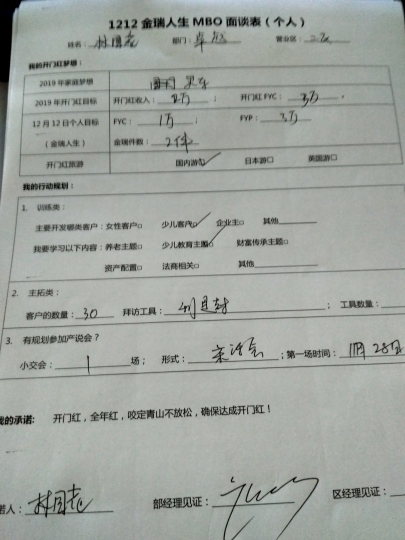 1212金瑞人生MBO面谈表（个人）
姓名： 部门：卓越 营业区：二区
我的开门红梦想：
2019年家庭梦想
2019年开门红目标 开门红收入： 万； 开门红FYC：3万
12月12日个人目标 FYC：1万 FYP：3万
（金瑞人生） 金瑞件数：2件
开门红旅游 国内游□✓ 日本游□ 英国游□
我的行动规划：
1. 训练类：
主要开发哪类客户：女性客户□ 少儿客户□✓ 企业主□ 其他
我要学习以下内容：养老主题□ 少儿教育主题□✓ 财富传承主题□
资产配置□ 法商相关□ 其他
2. 主拓类：
客户的数量：30 拜访工具： ； 工具数量：
3. 有规划参加产说会？
小交会：1 场； 形式： ；第一场时间：11月28日
我的承诺： 开门红，全年红，咬定青山不放松，确保达成开门红！
诺人： 部经理见证： 区经理见证：